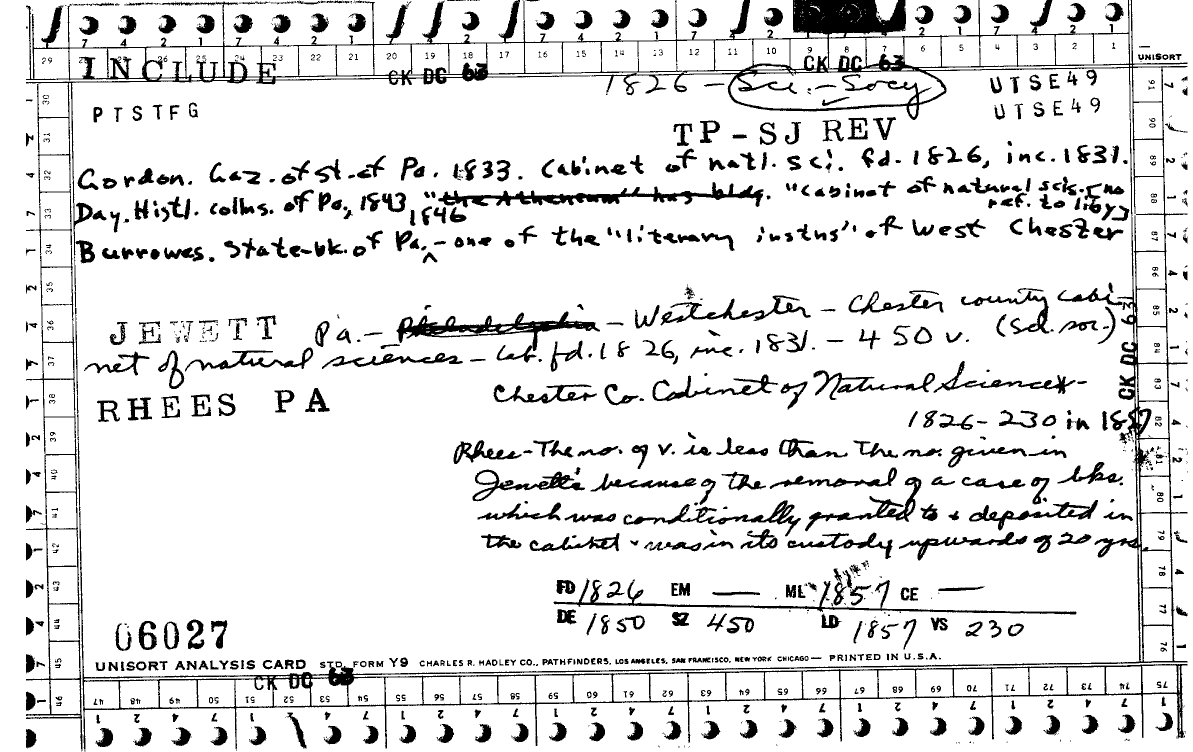 7 4 2 1 7 4 2 1 7 4 2 1 7 4 2 1
29 24 23 22 21 20 19 18 17 16 15 14 13 12 11 10 9 8 7 6 5 4 3 2 1 UNISORT
INCLUDE CK DC 63 CK DC 63
1826 - Sci. - Socy UTSE49
PTSTFG UTSE49
TP-SJ REV
Gordon. Gaz. of st. of Pa. 1833. Cabinet of natl. sci. fd. 1826, inc. 1831.
Day. Histl. collns. of Pa, 1843 "the Atheneum" has bldg. "Cabinet of natural scis. [no
ref. to liby]
1846
Burrowes. State-bk. of Pa. ^ - one of the "literary instns" of West Chester
JEWETT Pa. - Philadelphia - Westchester - Chester county cabi-
net of natural sciences - Lab. fd. 1826, inc. 1831. - 450 v. (Sci. soc.)
CK DC 63
RHEES PA Chester Co. Cabinet of Natural Science -
1826 - 230 in 1857
Rhees - The no. of v. is less than the no. given in
Jewett's because of the removal of a case of bks.
which was conditionally granted to & deposited in
the cabinet & was in its custody upwards of 20 yrs.
FD 1826 EM — ML 1857 CE —
DE 1850 SZ 450 LD 1857 VS 230
06027
UNISORT ANALYSIS CARD STD. FORM Y9 CHARLES R. HADLEY CO., PATHFINDERS, LOS ANGELES, SAN FRANCISCO, NEW YORK CHICAGO — PRINTED IN U.S.A.
CK DC 63
47 48 49 50 51 52 53 54 55 56 57 58 59 60 61 62 63 64 65 66 67 68 69 70 71 72 73 74 75
1 2 4 7 1 2 4 7 1 2 4 7 1 2 4 7 1 2 4 7 1 2 4 7 1